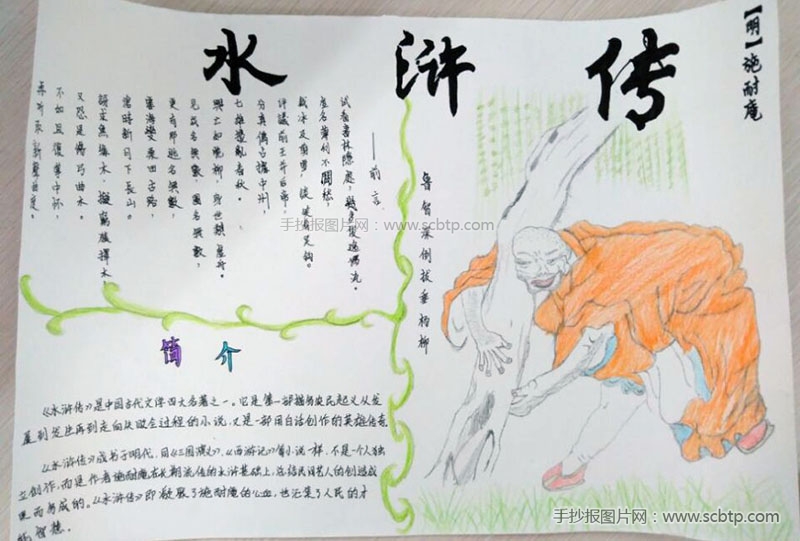 水浒传
【明】施耐庵
——前言
试看書林隐處，幾多俊逸儒流。
虛名薄利不関愁，
裁冰及剪雪，談笑看吴鈎。
評議前王并后帝，
分真偽占據中州，
七雄擾亂春秋。
興亡如脆柳，身世類虛舟。
見成名無數，圖名無數，
更有那逃名無數，
海變桑田古路，
時新月下長
求魚緣木，擬窮猿擇木
又恐是傷弓曲木。
不如且復掌中杯，
再听取新聲曲度。
鲁智深倒拔垂杨柳
简介
《水浒传》是中国古代文学四大名著之一。它是第一部描写农民起义从发
展到壮大再到走向失败全过程的小说，又是一部用白话创作的英雄传奇
《水浒传》成书于明代，同《三国演义》、《西游记》等小说一样，不是一个人独
立创作，而是作者施耐庵在长期流传的水浒基础上，总结民间艺人的创造成
果而写成的。《水浒传》即凝聚了施耐庵的心血，也汇集了人民的才
能智慧。
手抄报图片网：www.scbtp.com
手抄报图片网：www.scbtp.com